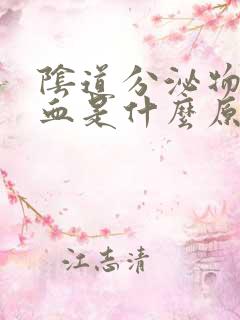 陰道分泌物
血是什麼原
江志清